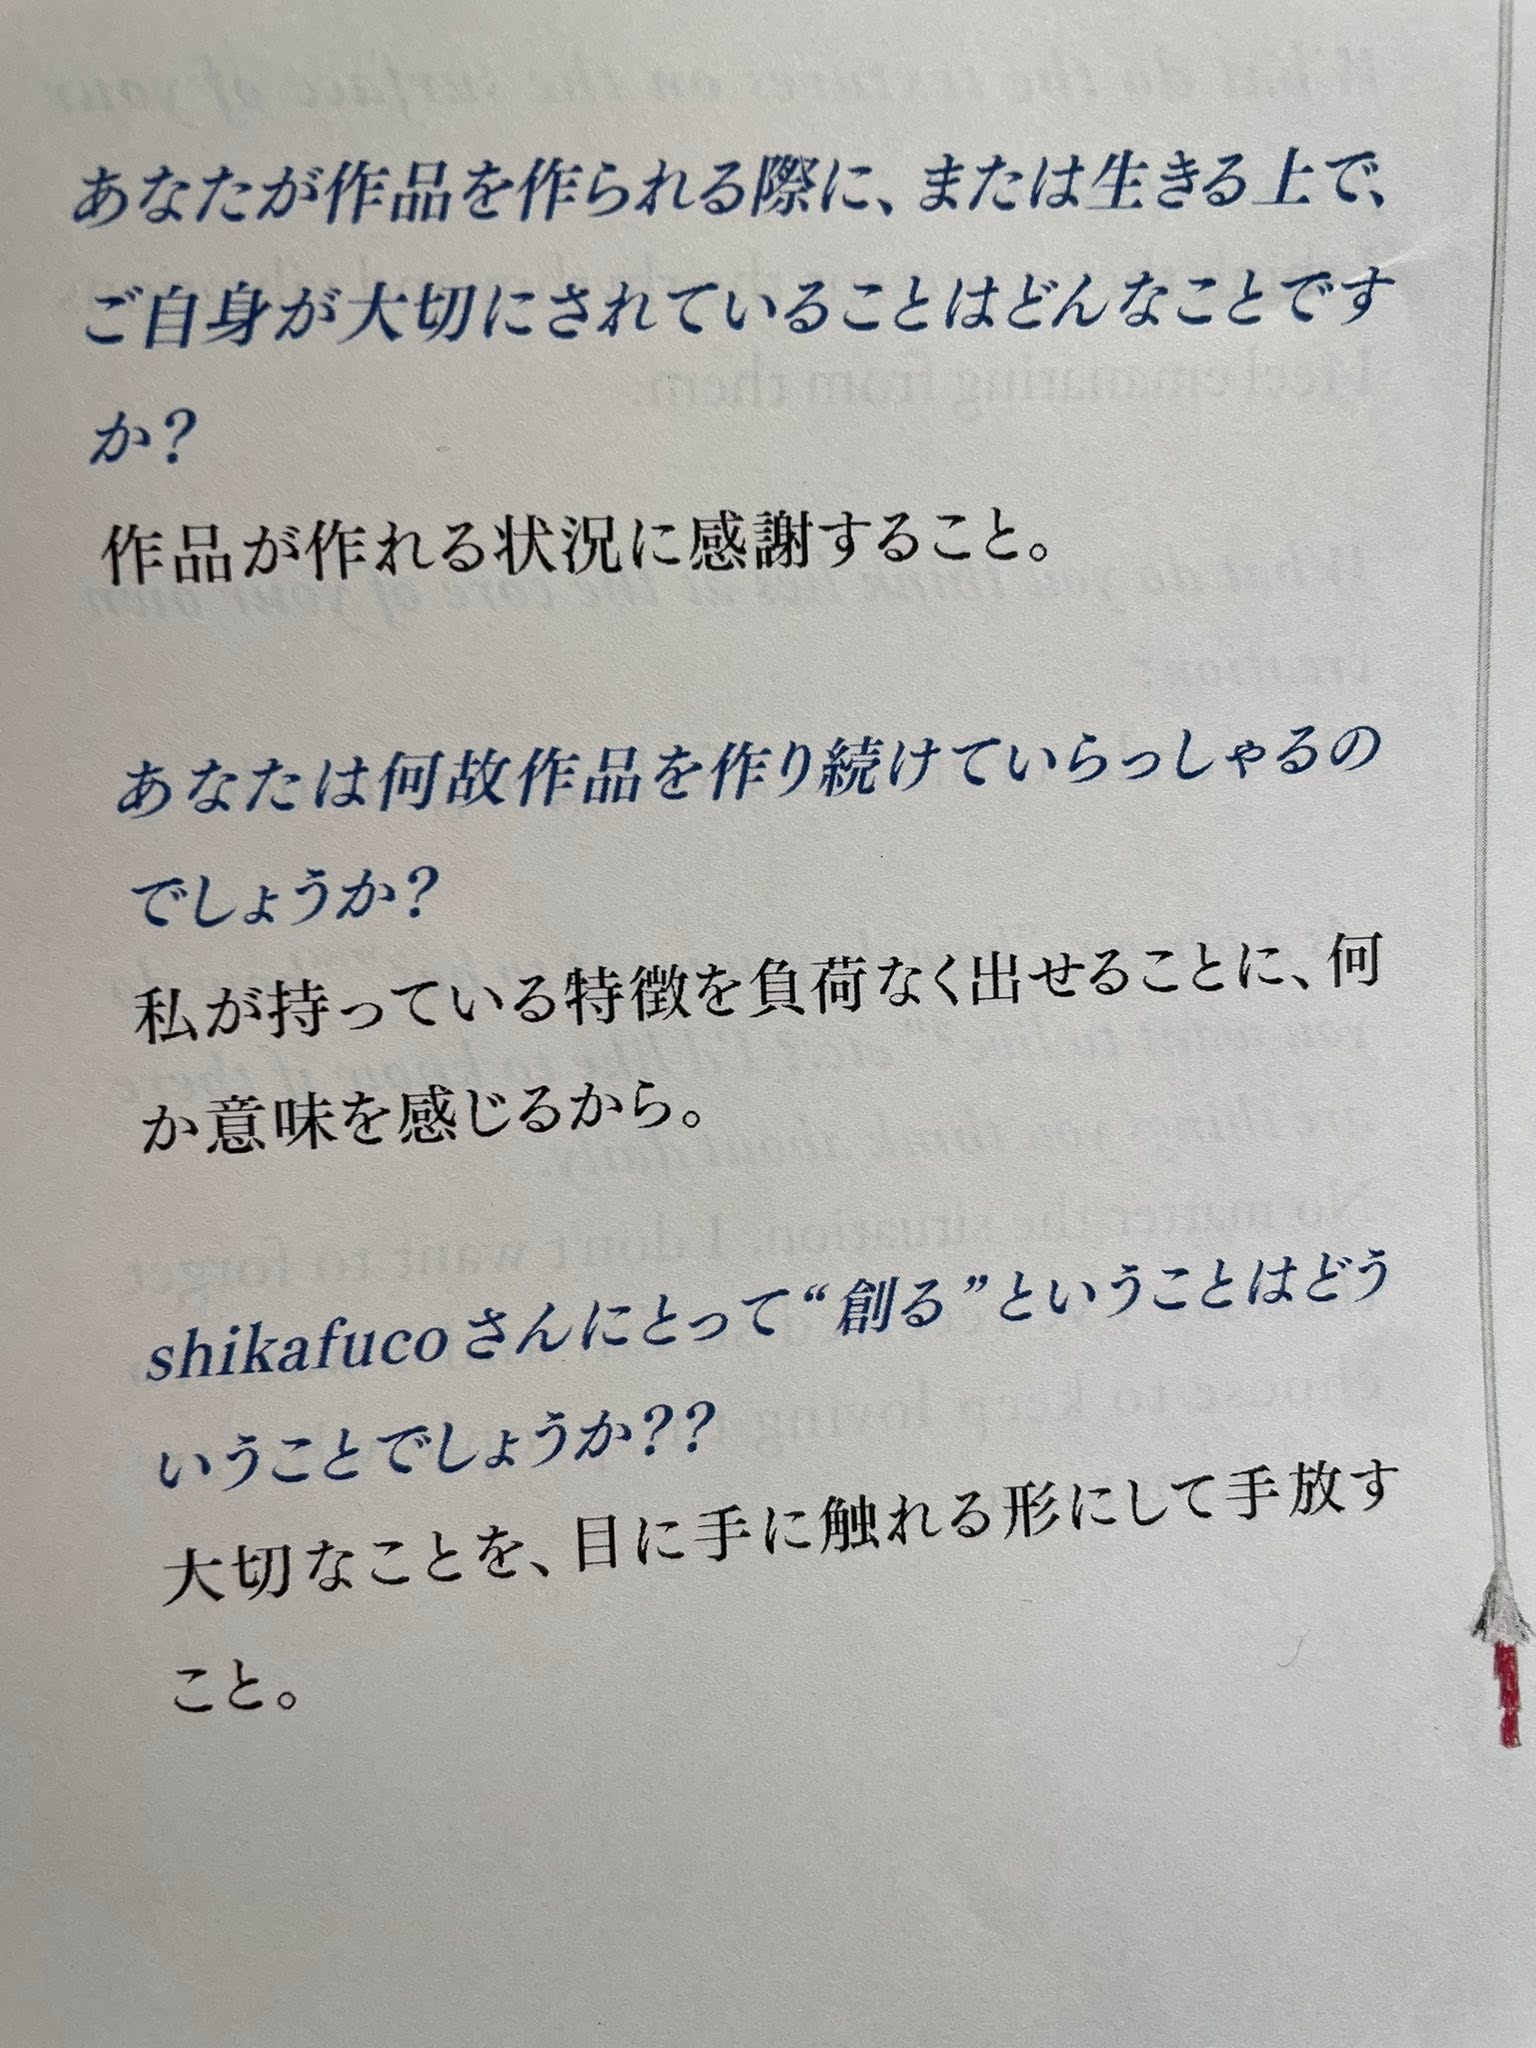 あなたが作品を作られる際に、または生きる上で、
ご自身が大切にされていることはどんなことです
か？
作品が作れる状況に感謝すること。
あなたは何故作品を作り続けていらっしゃるの
でしょうか？
私が持っている特徴を負荷なく出せることに、何
か意味を感じるから。
shikafucoさんにとって“創る”ということはどう
いうことでしょうか？？
大切なことを、目に手に触れる形にして手放す
こと。